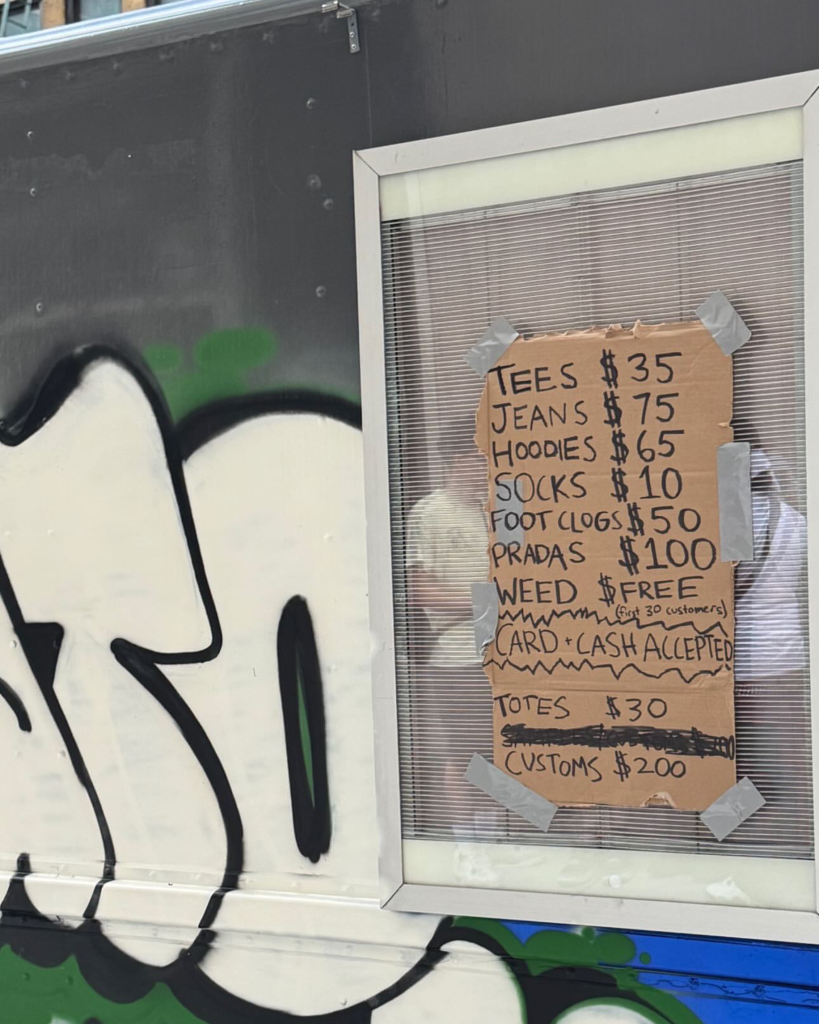 TEES $35
JEANS $75
HOODIES $65
SOCKS $10
FOOT CLOGS $50
PRADAS $100
WEED $FREE
(first 30 customers)
CARD + CASH ACCEPTED
TOTES $30
CUSTOMS $200